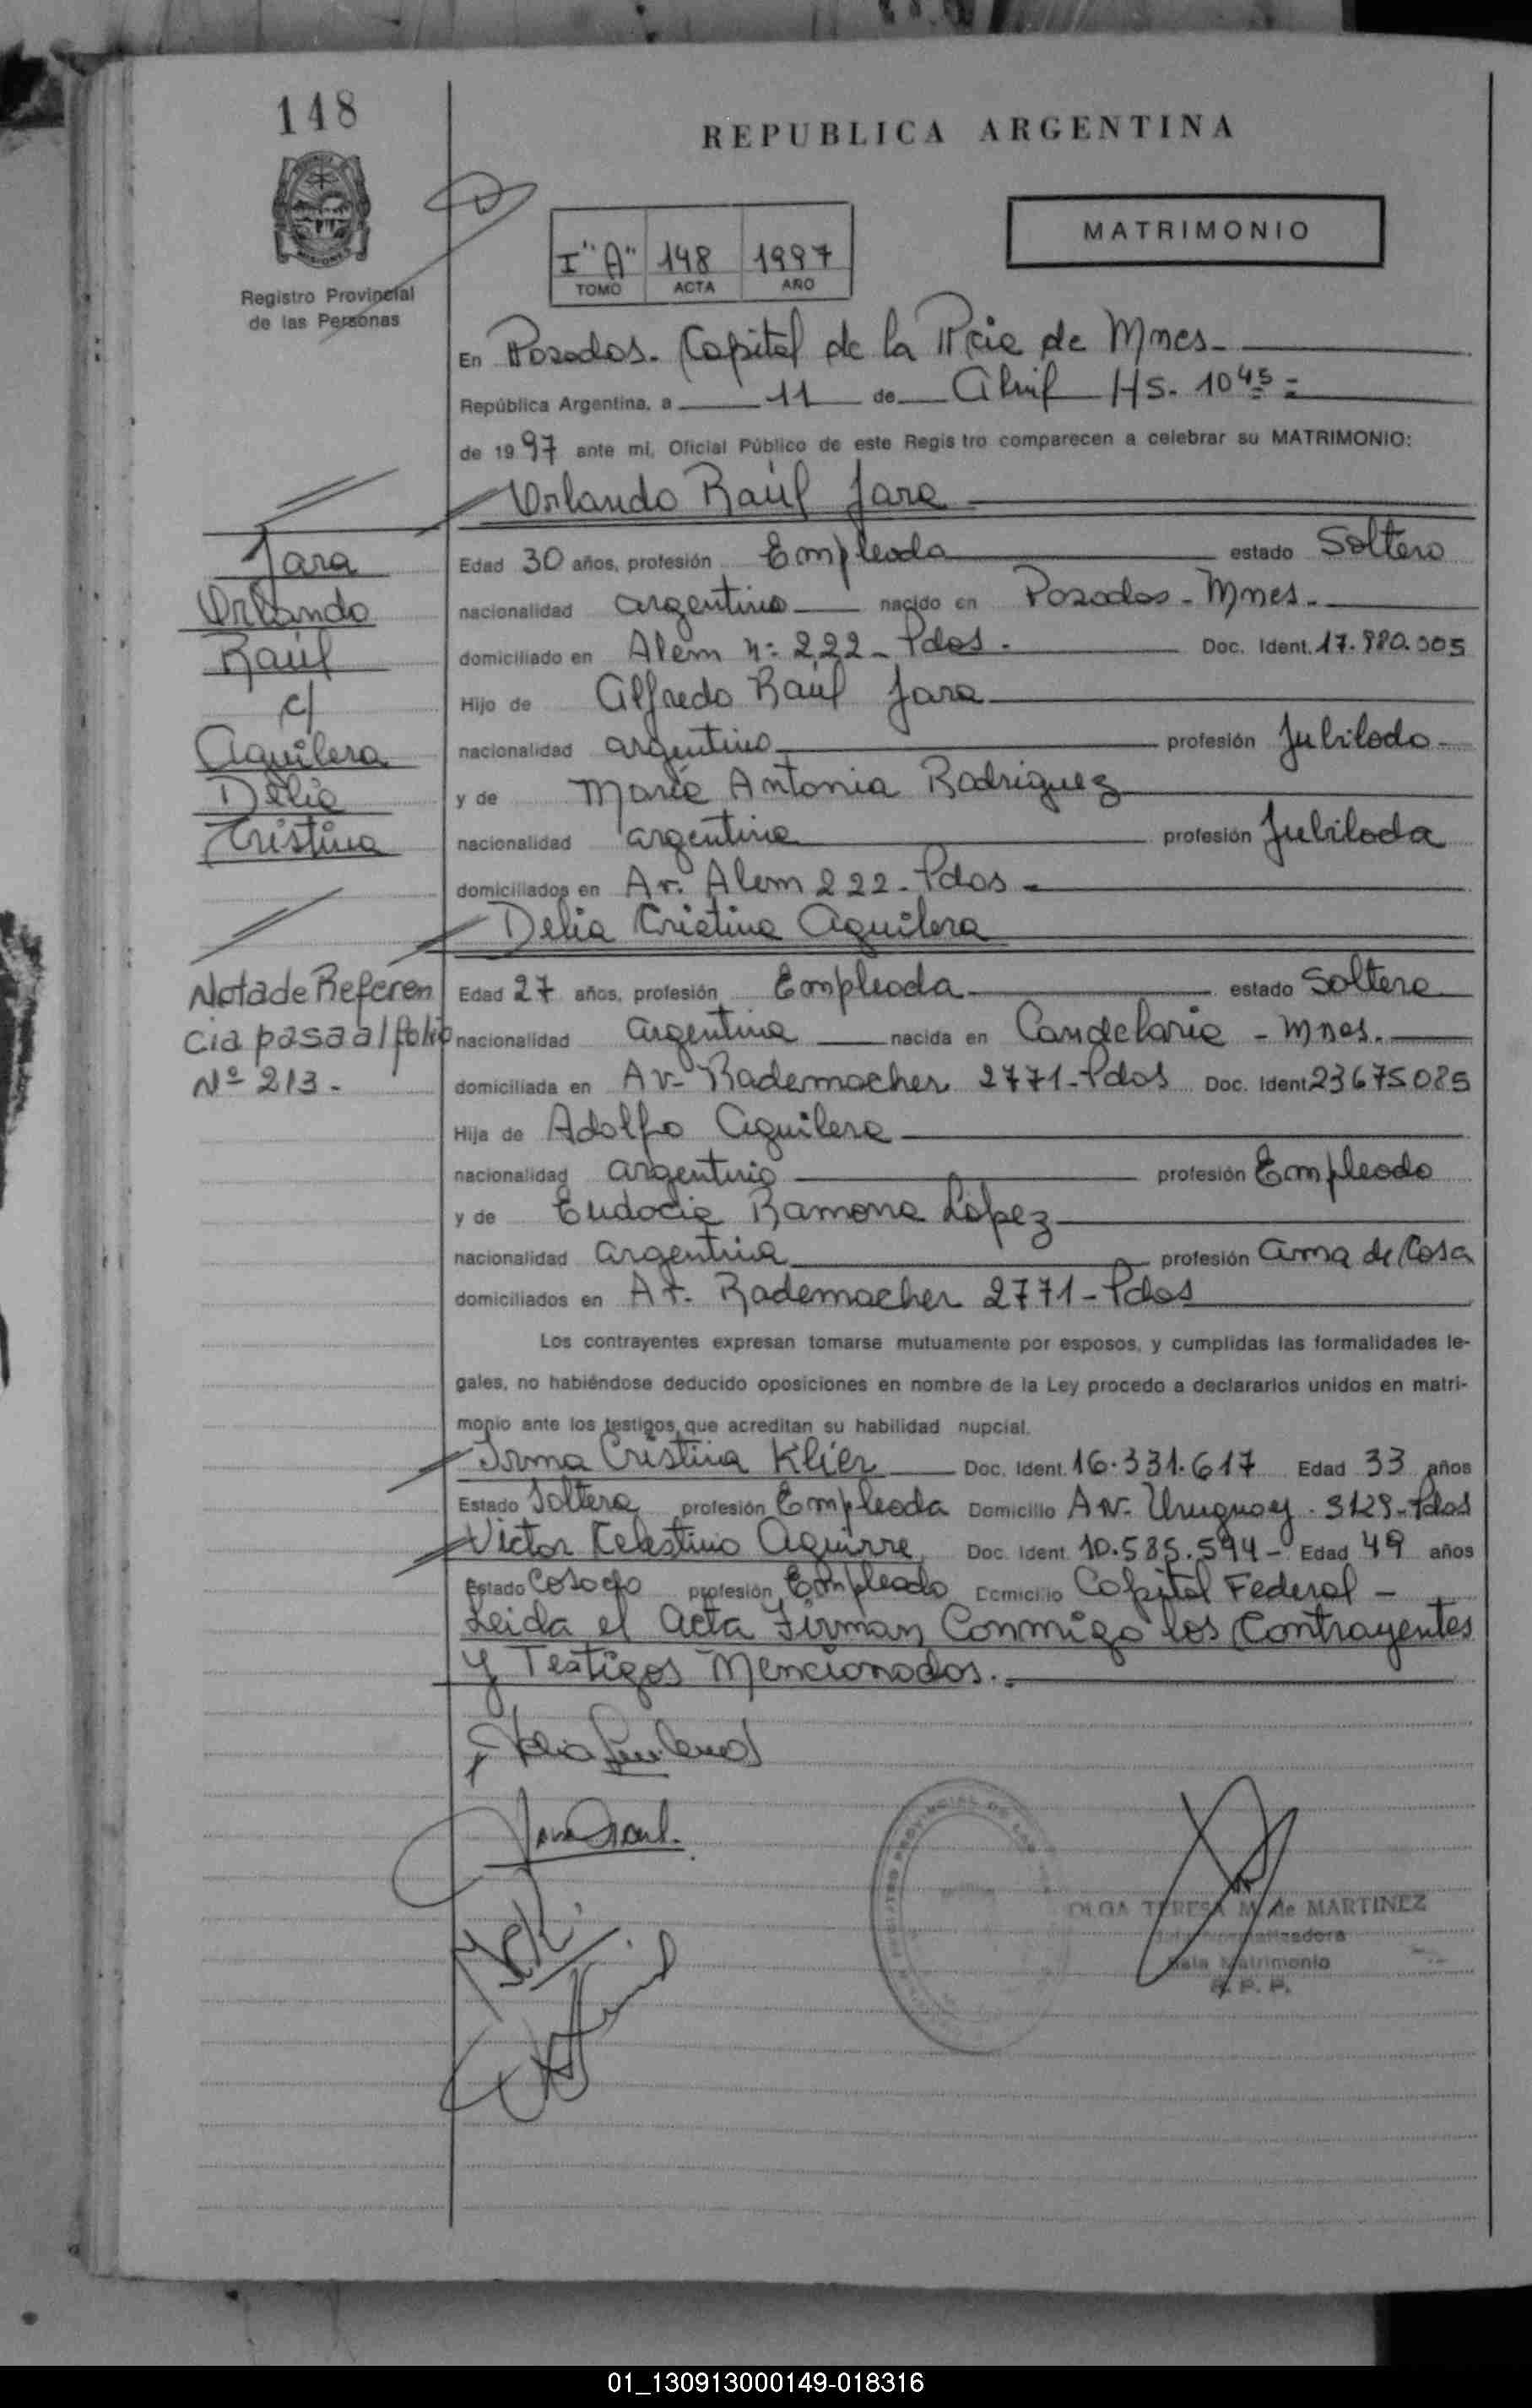 148
REPUBLICA ARGENTINA
MATRIMONIO
I "A" 148 1997
TOMO ACTA AÑO
Registro Provincial
de las Personas
En Posadas. Capital de la Pcia de Mnes-
República Argentina, a 11 de Abril Hs. 10 45 =
de 1997 ante mi, Oficial Público de este Registro comparecen a celebrar su MATRIMONIO:
Orlando Raúl Jara
Jara
Orlando
Raúl
c/
Aguilera
Delia
Cristina
Edad 30 años, profesión Empleado estado Soltero
nacionalidad argentino nacido en Posadas - Mnes.
domiciliado en Alem nº 222 - Pdas. Doc. Ident. 17.980.005
Hijo de Alfredo Raúl Jara
nacionalidad argentino profesión Jubilado-
y de María Antonia Rodriguez
nacionalidad argentina profesión Jubilada
domiciliados en Av. Alem 222 - Pdas -
Delia Cristina Aguilera
Nota de Referen
cia pasa al folio
Nº 213-
Edad 27 años, profesión Empleada estado Soltera
nacionalidad Argentina nacida en Candelaria - Mnes.
domiciliada en Av- Rademacher 2771-Pdas Doc. Ident 23675085
Hija de Adolfo Aguilera
nacionalidad argentino profesión Empleado
y de Eudocia Ramona López
nacionalidad argentina profesión Ama de Casa
domiciliados en Av. Rademacher 2771-Pdas
Los contrayentes expresan tomarse mutuamente por esposos, y cumplidas las formalidades le-
gales, no habiéndose deducido oposiciones en nombre de la Ley procedo a declararlos unidos en matri-
monio ante los testigos que acreditan su habilidad nupcial.
Irma Cristina Klier Doc. Ident. 16.331.617 Edad 33 años
Estado Soltera profesión Empleada Domicilio Av. Uruguay. 3129-Pdas
Victor Celestino Aguirre Doc. Ident. 10.585.594- Edad 49 años
Estado Casado profesión Empleado Domicilio Capital Federal -
Leida el Acta Firman Conmigo los Contrayentes
y Testigos Mencionados.
OLGA TERESA M. de MARTINEZ
Sala Matrimonio
R. P. P.
01_130913000149-018316